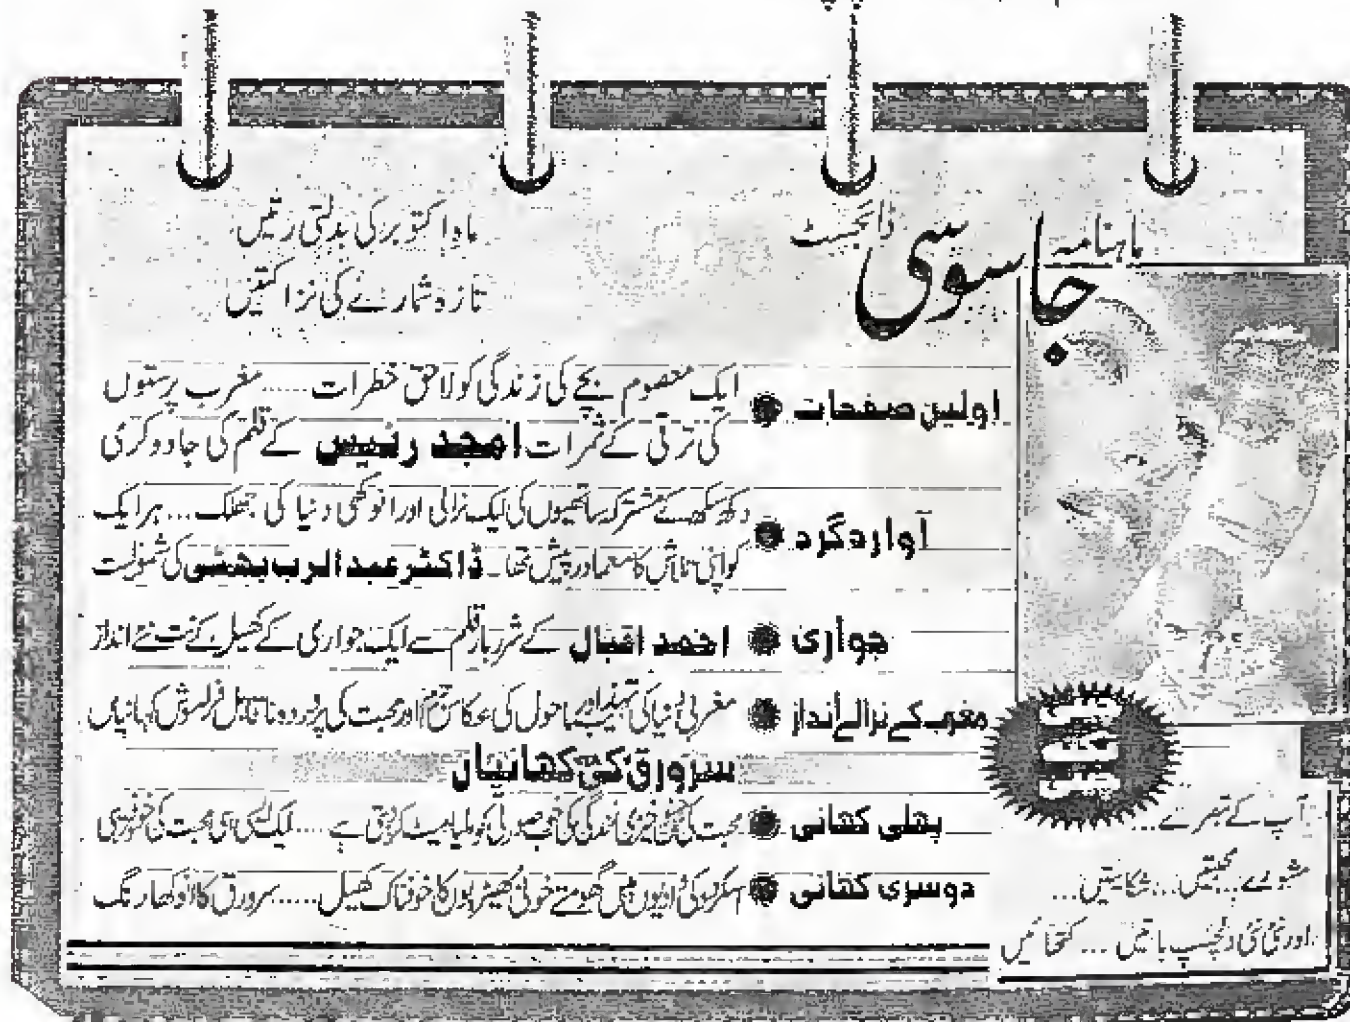 ماہنامہ جاسوسی ڈائجسٹ
ماہ اکتوبر کی بدلتی رتیں
تازہ شمارے کی نزاکتیں
اولین صفحات ● ایک معصوم بچے کی زندگی کو لاحق خطرات ..... مغرب پرستوں
کی ترقی کے ثمرات امجد رئیس کے قلم کی جادوگری
آوارہ گرد ● دکھ سکھ کے مشترکہ ساتھیوں کی ایک نرالی اور انوکھی دنیا کی جھلک ... ہر ایک
کو اپنی تلاش کا معما درپیش تھا۔ ڈاکٹر عبدالرب بھٹی کی
جواری ● احمد اقبال کے شرربار قلم سے ایک جواری کے کھیل کے نت نئے انداز
مغرب کے نرالے انداز ● مغربی دنیا کی تہذیب اور ماحول کی عکاس اور محبت کی ناقابل فراموش کہانیاں
سرورق کی کہانیاں
پہلی کہانی ● محبت کی زندگی کی خوب صورتی کو ملیامیٹ کر دیتی ہے ..... ایک ایسی ہی محبت کی
دوسری کہانی ● اسکردو کی وادیوں میں گھومتے خونی بھیڑیوں کا خوفناک کھیل ..... سرورق کا انوکھا رنگ
آپ کے تبصرے ...
مشورے ... محبتیں ... شکایتیں ...
اور نئی نئی دلچسپ باتیں ... کتھائیں